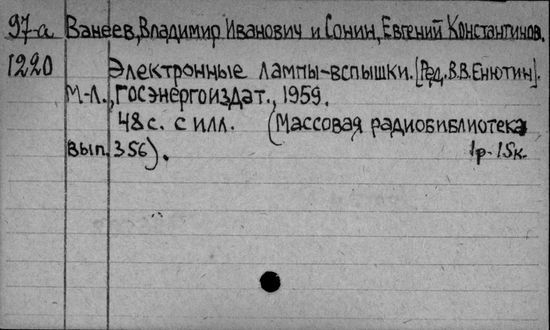 97-а Ванеев, Владимир Иванович и Сонин, Евгений Константинов.
1220 Электронные лампы-вспышки. [Ред. В.В. Енютин].
М-Л., Госэнергоиздат., 1959.
48 с. с илл. (Массовая радиобиблиотека
вып. 356). 1р. 15к.